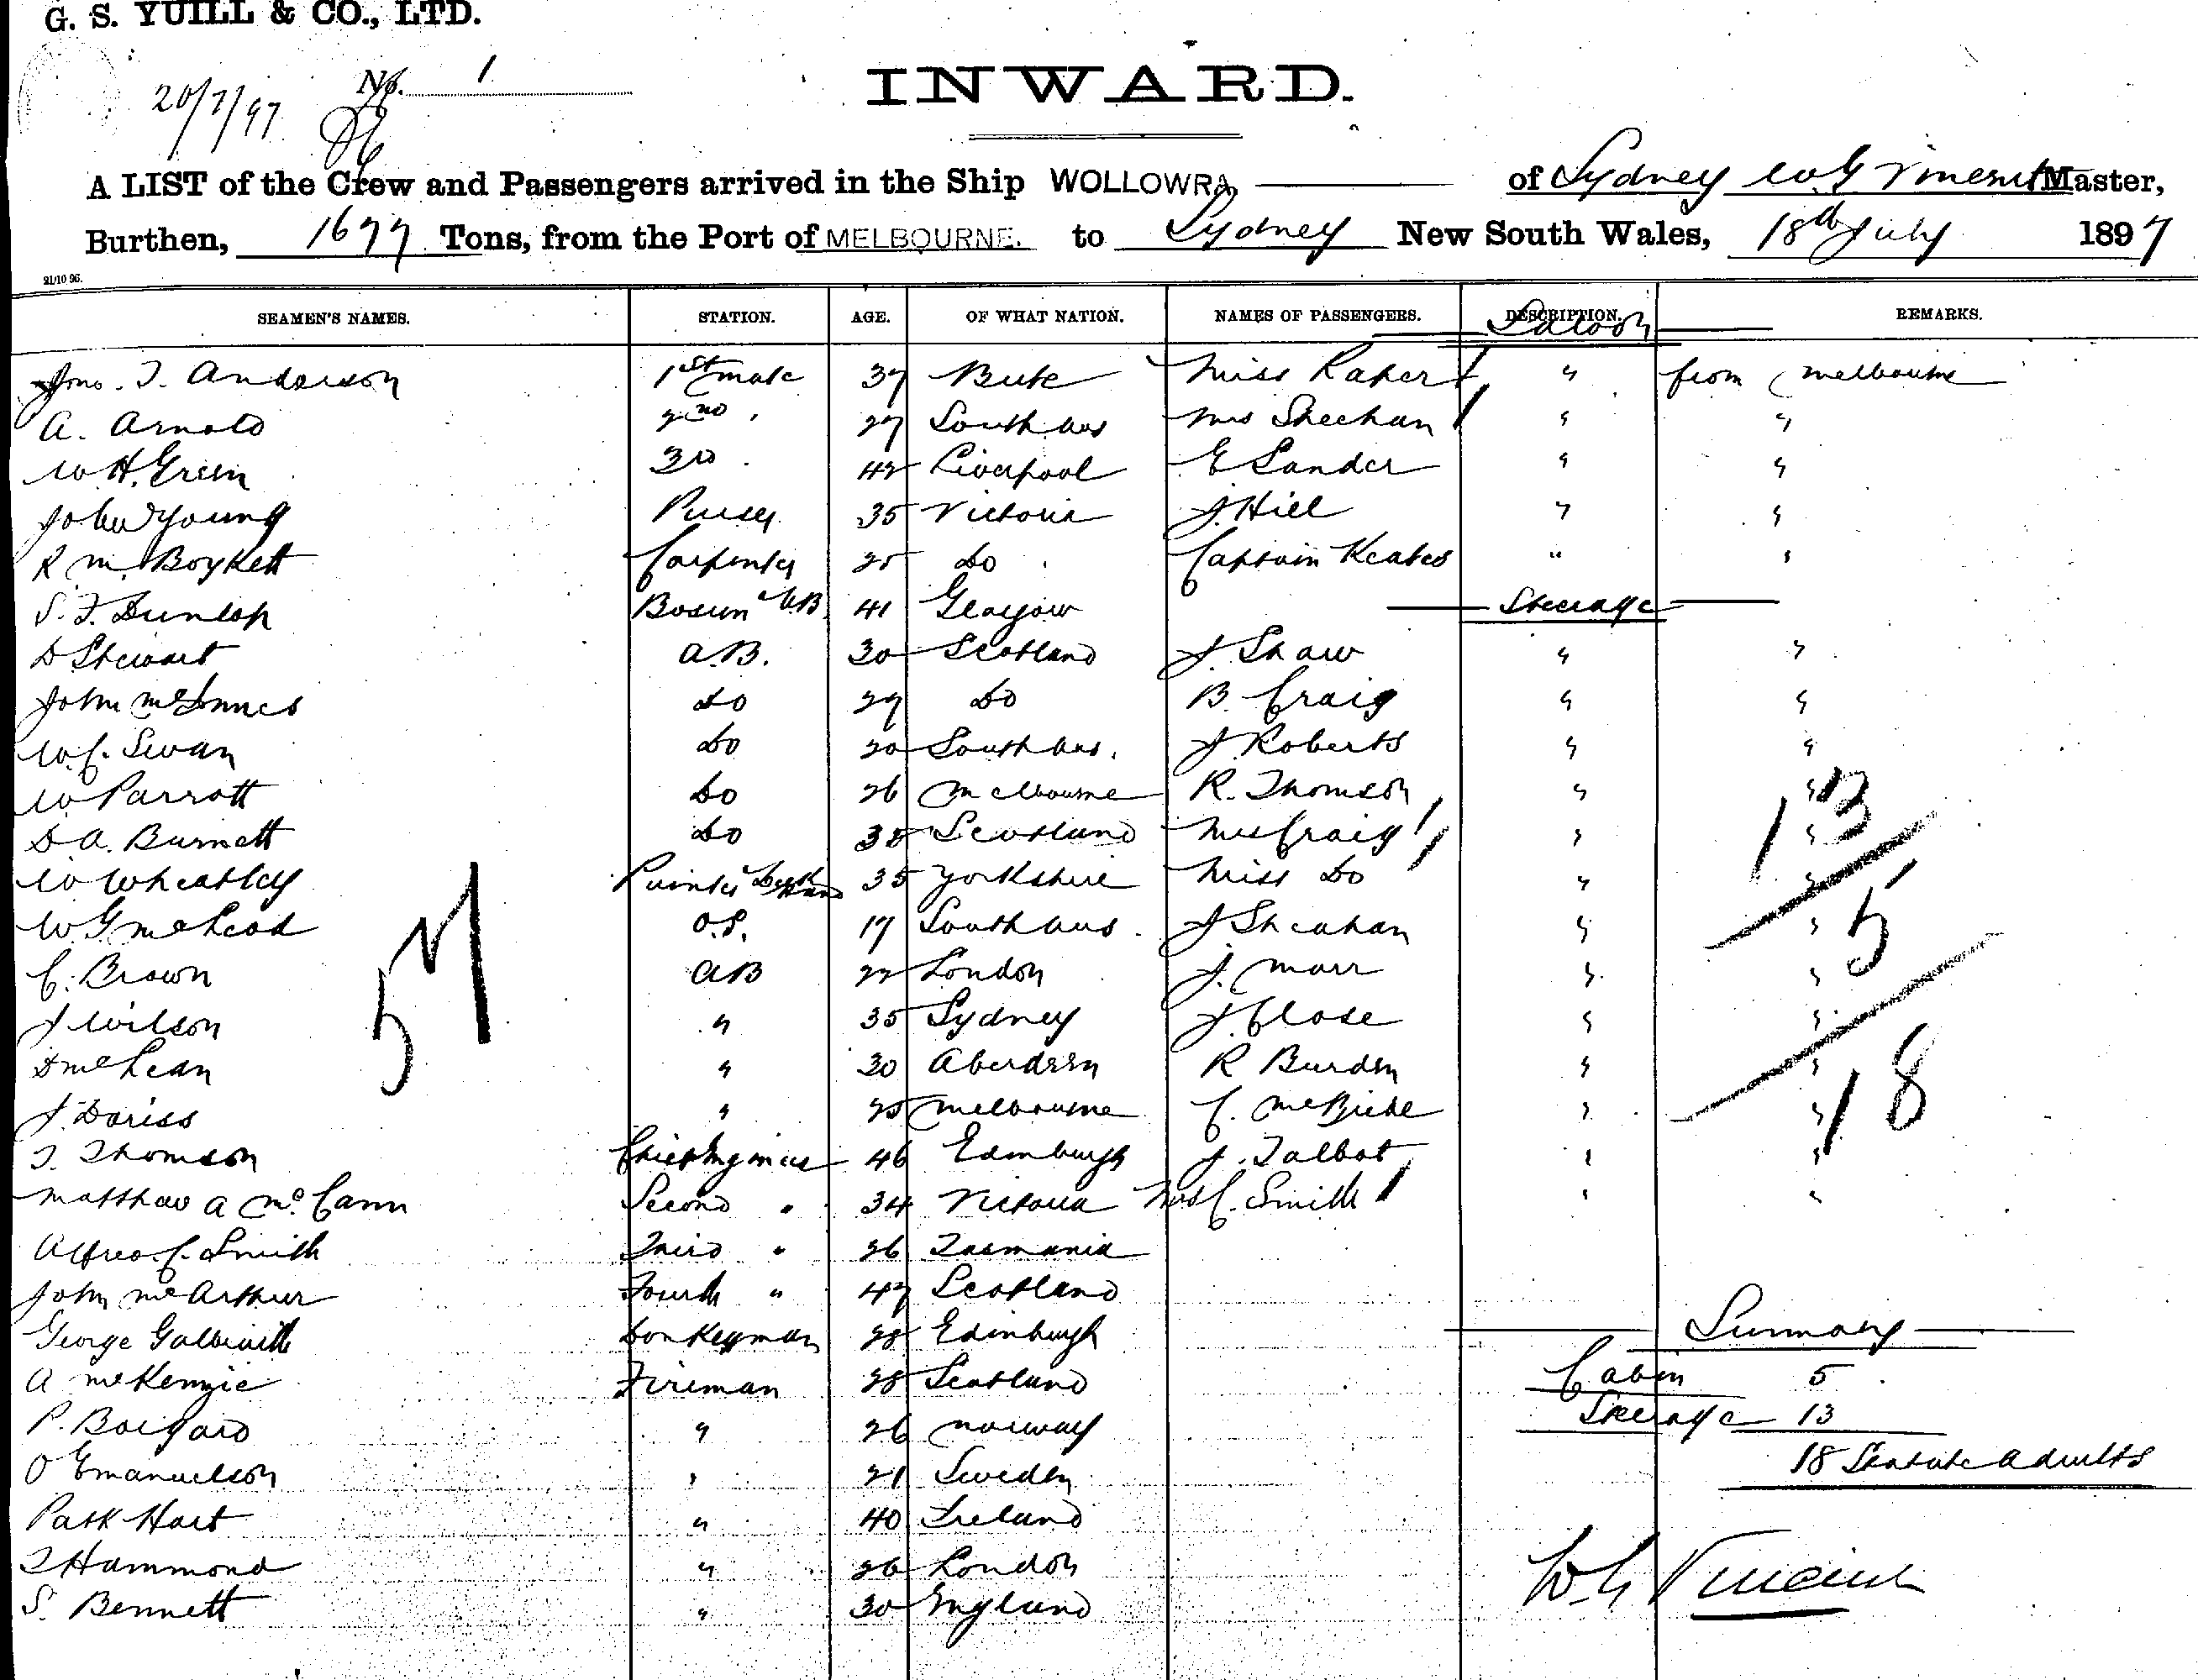 G. S. YUILL & CO., LTD.
20/7/97 No. 1
INWARD.
A LIST of the Crew and Passengers arrived in the Ship WOLLOWRA of Sydney W.G Vincent Master,
Burthen, 1677 Tons, from the Port of MELBOURNE. to Sydney New South Wales, 18th July 1897
21/10 96.
SEAMEN'S NAMES. STATION. AGE. OF WHAT NATION. NAMES OF PASSENGERS. DESCRIPTION. REMARKS.
Saloon
Jno. T. Anderson 1st mate 37 Bute Miss Raker " from Melbourne
A. Arnold 2nd " 27 South Aus Mrs Sheehan " "
W H. Green 3rd 42 Liverpool E Sander " "
John Young Purser 35 Victoria J. Hill " "
R. M. Boykett Carpenter 25 Do Captain Keates " "
S. F. Dunlop Bosun AB 41 Glasgow Steerage
D Stewart A.B. 30 Scotland J. Shaw " "
John McInnes do 29 Do B. Craig " "
W.C. Swan do 20 South Aus. J. Roberts " "
W Parrott do 26 Melbourne R. Thomson " " 13
D A. Burnett do 38 Scotland Mrs Craig " "
W Wheatley Deck 35 Yorkshire Miss Do " "
W G McLeod O.S. 17 South Aus. J Sheahan " " 5
C. Brown AB 22 London J. Marr " "
57
J Wilson " 35 Sydney J. Close " "
D McLean " 30 Aberdeen R Burden " "
18
J. Doriss " 25 Melbourne C. McBride " "
T. Thomson Chief Engineer 46 Edinburgh J. Talbot " "
Matthew A McCann Second " 34 Victoria Mrs C. Smith " "
Alfred. C. Smith Third " 26 Tasmania
John McArthur Fourth " 47 Scotland
George Galbraith Donkeyman 28 Edinburgh Summary
A McKenzie Fireman 28 Scotland Cabin 5
P. Borgard " 26 Norway Steerage 13
O Emanuelson " 21 Sweden 18 Statute Adults
Patk Hart " 40 Ireland
T Hammond " 26 London W G Vincent
S. Bennett " 30 England